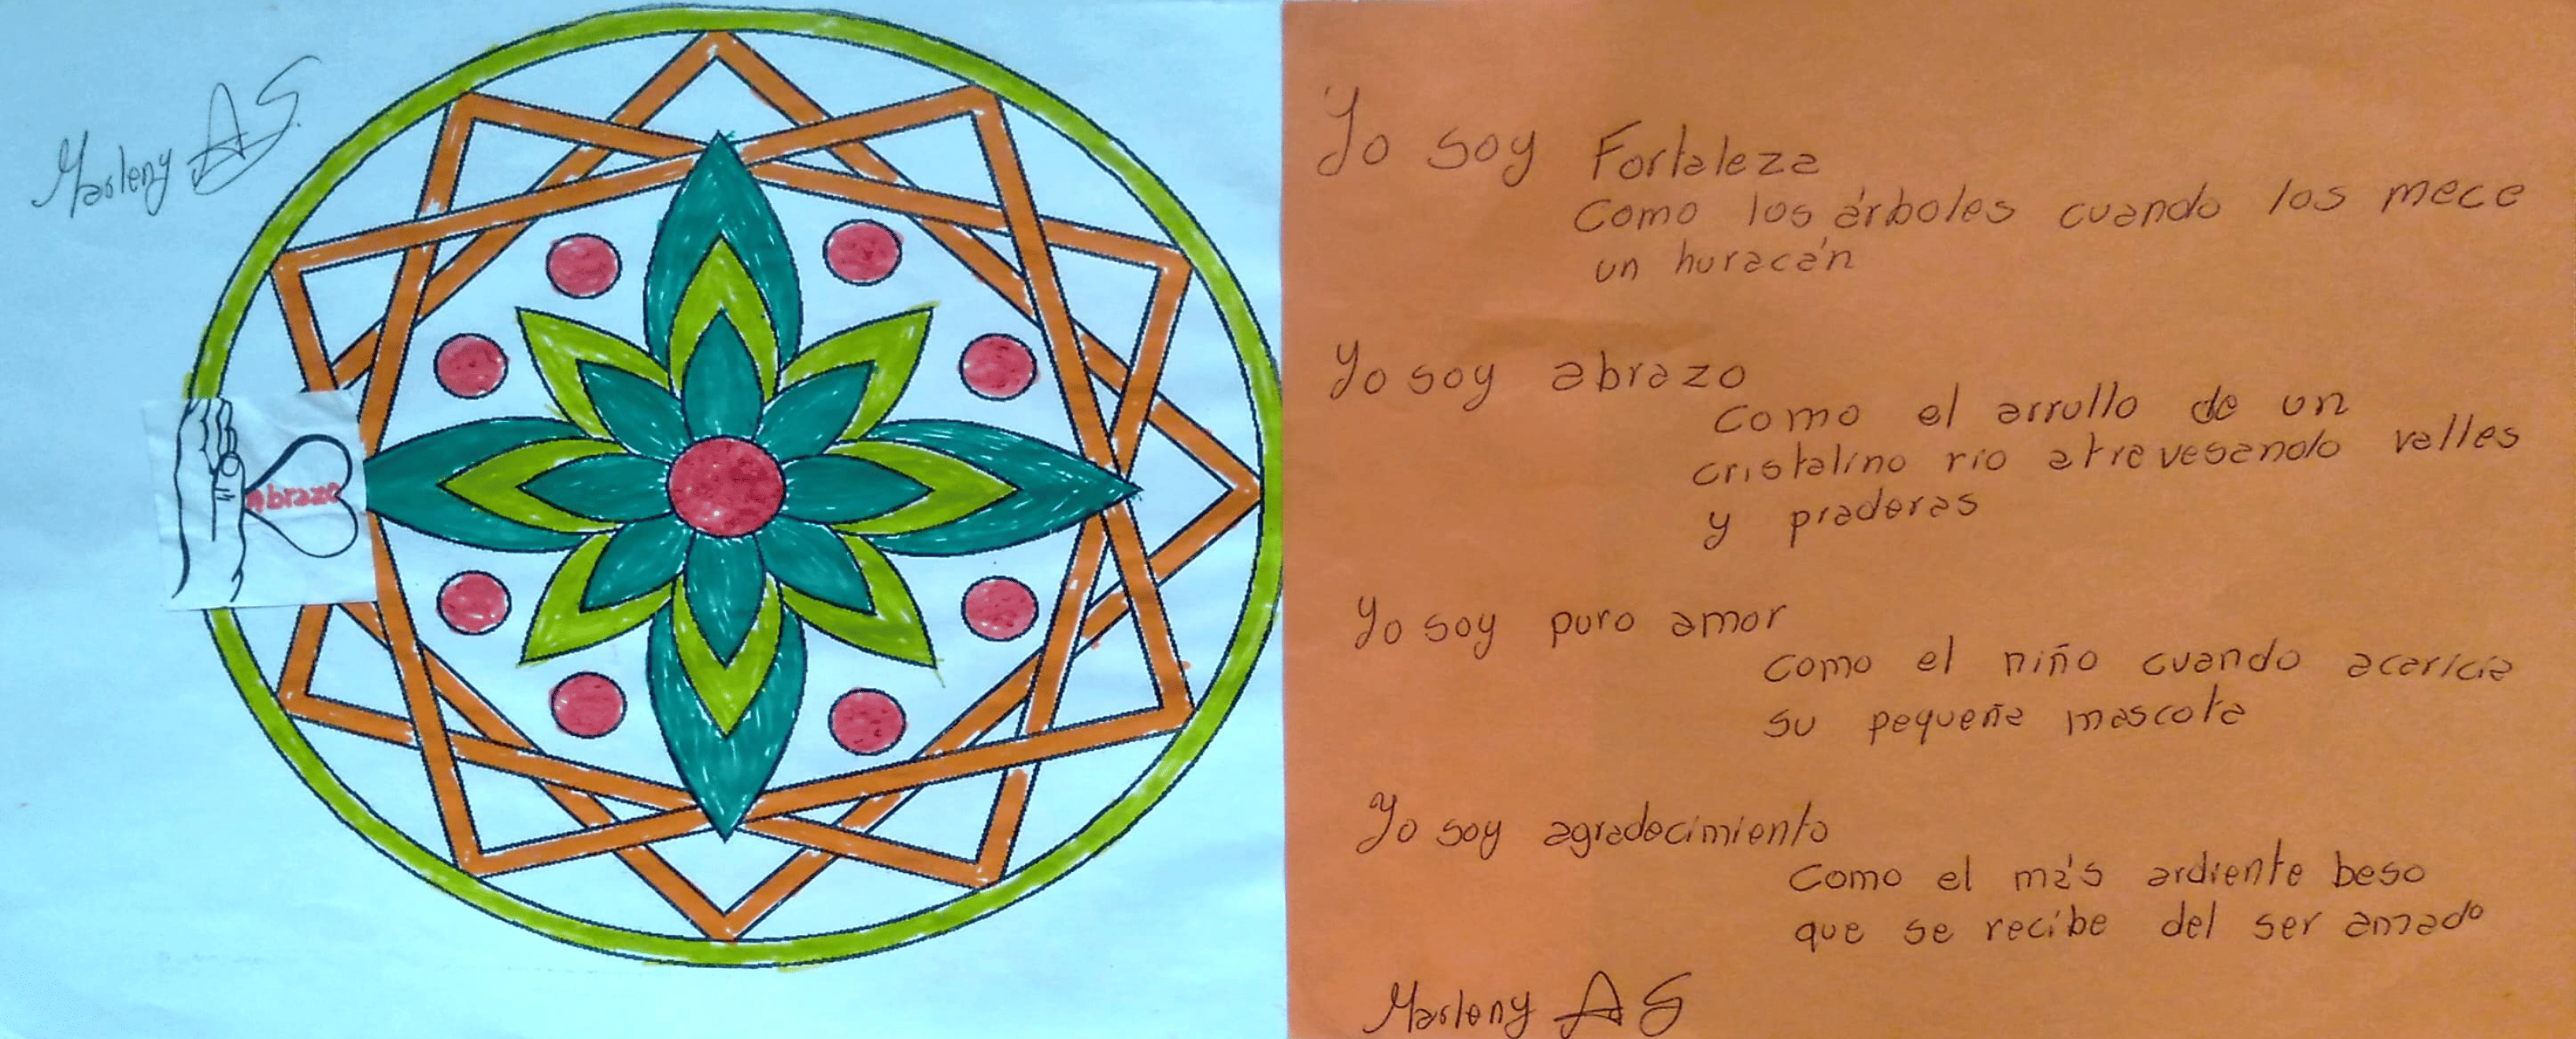 Marleny AS
Abrazo
Yo soy Fortaleza
Como los árboles cuando los mece
un huracán
Yo soy abrazo
Como el arrullo de un
cristalino rio atrevesando valles
y praderas
Yo soy puro amor
Como el niño cuando acaricia
su pequeña mascota
Yo soy agradecimiento
Como el más ardiente beso
que se recibe del ser amado
Marleny AS